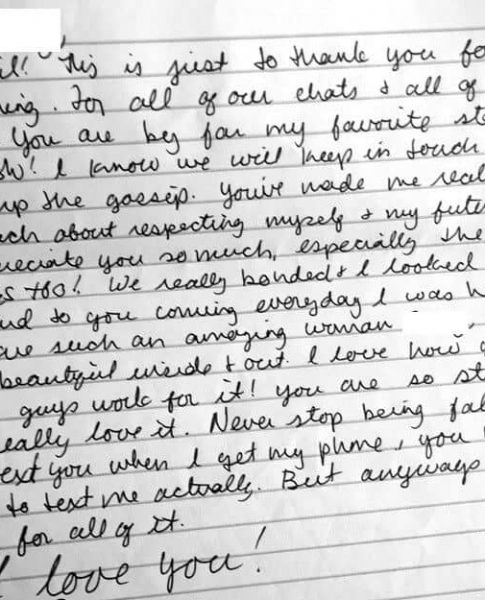 This is just to thank you
For all of our chats & all of
You are by far my favorite
I know we will keep in touch
up the gossip. You've made me
about respecting myself & my
you so much, especially the
too! We really bonded & I looked
to you coming everyday I was
such an amazing woman
beautiful inside & out. I love how
guys work for it! You are so
love it. Never stop being
you when I get my phone, you
to text me actually. But anyways
for all of it.
love you!